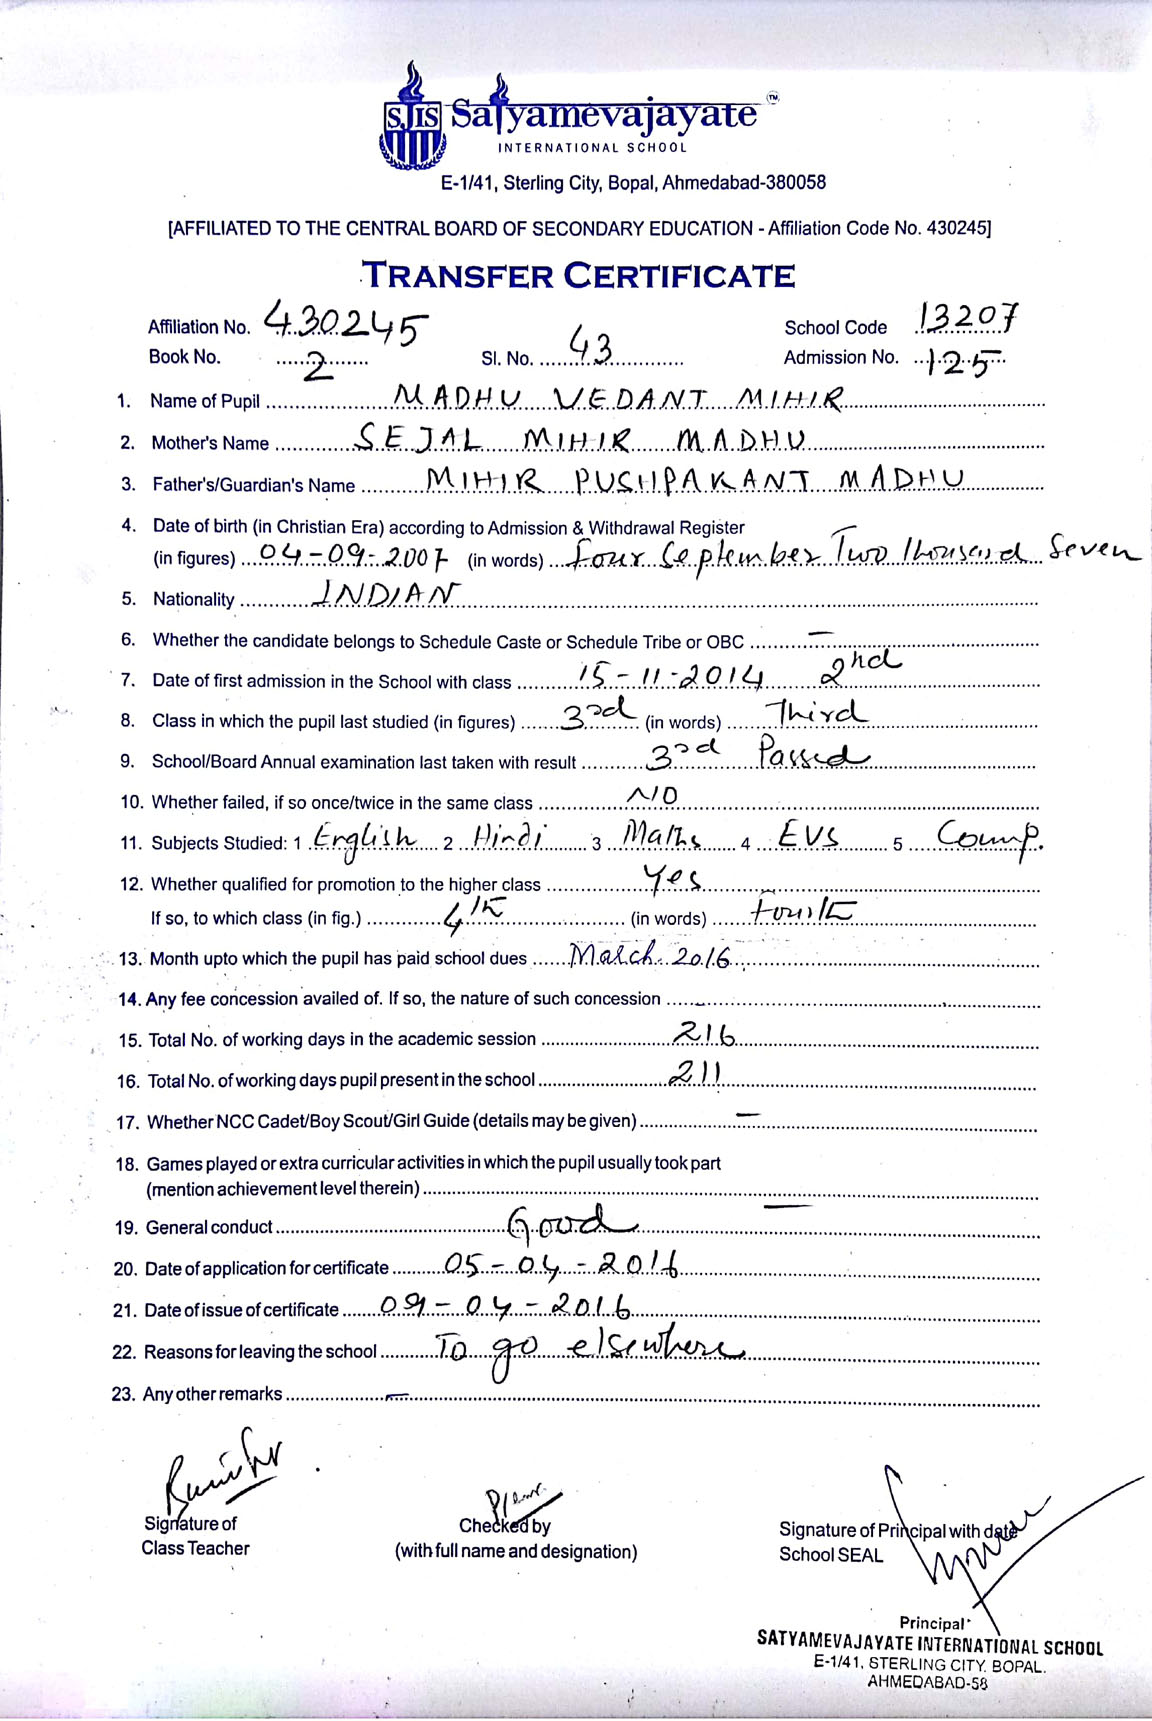 SJIS Satyamevajayate TM
INTERNATIONAL SCHOOL
E-1/41, Sterling City, Bopal, Ahmedabad-380058
[AFFILIATED TO THE CENTRAL BOARD OF SECONDARY EDUCATION - Affiliation Code No. 430245]
TRANSFER CERTIFICATE
Affiliation No. 430245 School Code 13207
Book No. 2 Sl. No. 43 Admission No. 125
1. Name of Pupil MADHU VEDANT MIHIR
2. Mother's Name SEJAL MIHIR MADHU
3. Father's/Guardian's Name MIHIR PUSHPAKANT MADHU
4. Date of birth (in Christian Era) according to Admission & Withdrawal Register
(in figures) 04-09-2007 (in words) Four September Two Thousand Seven
5. Nationality INDIAN
6. Whether the candidate belongs to Schedule Caste or Schedule Tribe or OBC —
7. Date of first admission in the School with class 15-11-2014 2nd
8. Class in which the pupil last studied (in figures) 3rd (in words) Third
9. School/Board Annual examination last taken with result 3rd Passed
10. Whether failed, if so once/twice in the same class NO
11. Subjects Studied: 1 English 2 Hindi 3 Maths 4 EVS 5 Comp.
12. Whether qualified for promotion to the higher class Yes
If so, to which class (in fig.) 4th (in words) Fourth
13. Month upto which the pupil has paid school dues March 2016
14. Any fee concession availed of. If so, the nature of such concession
15. Total No. of working days in the academic session 216
16. Total No. of working days pupil present in the school 211
17. Whether NCC Cadet/Boy Scout/Girl Guide (details may be given) —
18. Games played or extra curricular activities in which the pupil usually took part
(mention achievement level therein) —
19. General conduct Good
20. Date of application for certificate 05-04-2016
21. Date of issue of certificate 09-04-2016
22. Reasons for leaving the school To go elsewhere
23. Any other remarks —
Signature of
Class Teacher
Checked by
(with full name and designation)
Signature of Principal with date
School SEAL
Principal
SATYAMEVAJAYATE INTERNATIONAL SCHOOL
E-1/41, STERLING CITY, BOPAL,
AHMEDABAD-58